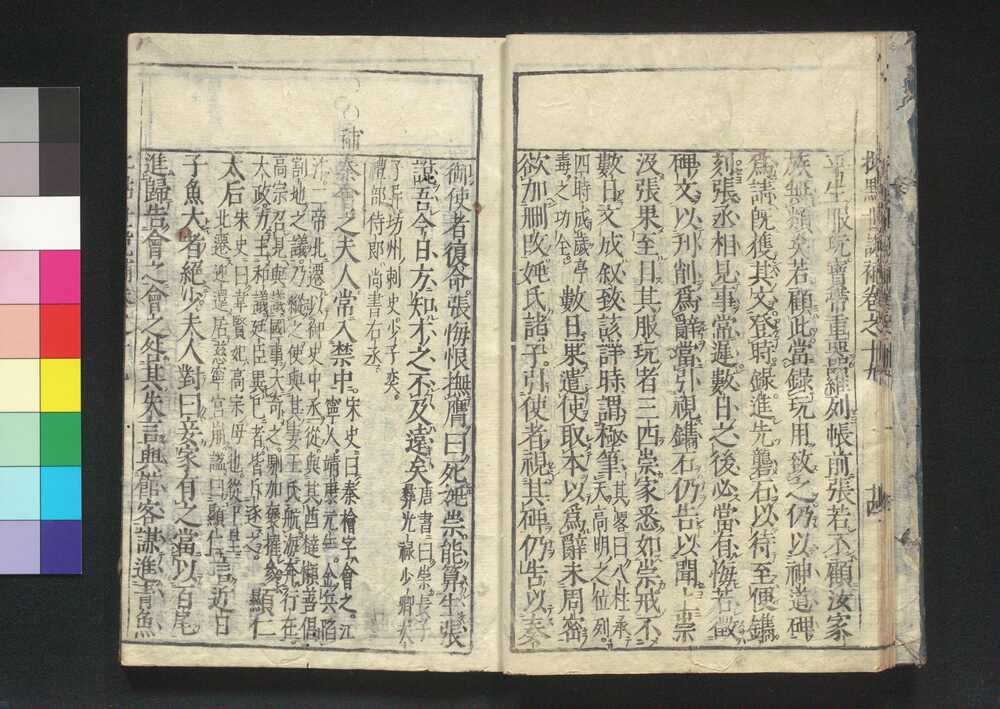 批點世說補卷之十九
平生服玩寶帶重器羅列帳前張若不顧汝家
族無類矣若顧此當錄玩用致之仍以神道碑
爲請旣獲其文登時錄進先礱石以待至便鐫
刻張丞相見事常遲數日之後必當有悔若徵
碑文以刋削爲辭當引視鐫石仍告以聞上崇
沒張果至目其服玩者三四崇家悉如崇戒不
數日文成叙致該詳時謂極筆其畧曰八柱承天高明之位列
四時成歲亭毒之功全數日果遣使取本以爲辭未周密
欲加刪改姚氏諸子引使者視其碑仍告以奏
御使者復命張悔恨撫膺曰死姚崇能算生張
說吾今日方知才之不及遠矣唐書曰崇長子彝光祿少卿次
子异坊州刺史少子奕
禮部侍郎尚書右丞
補
秦會之夫人常入禁中宋史曰秦檜字會之江
寧人靖康元年金兵陷
汴二帝北遷以御史中丞從與其酋撻懶善倡
割地之議乃縱之使與其妻王氏航海奔行在
高宗召見與議國事大奇之驟加褒擢參預
大政力主和議廷臣異己者皆斥逐之顯仁
太后宋史曰韋賢妃高宗母也從上皇
北遷迎還居慈寧宮崩諡曰顯仁言近日
子魚大者絕少夫人對曰妾家有之當以百尾
進歸告會之會之咎其失言與館客謀進靑魚